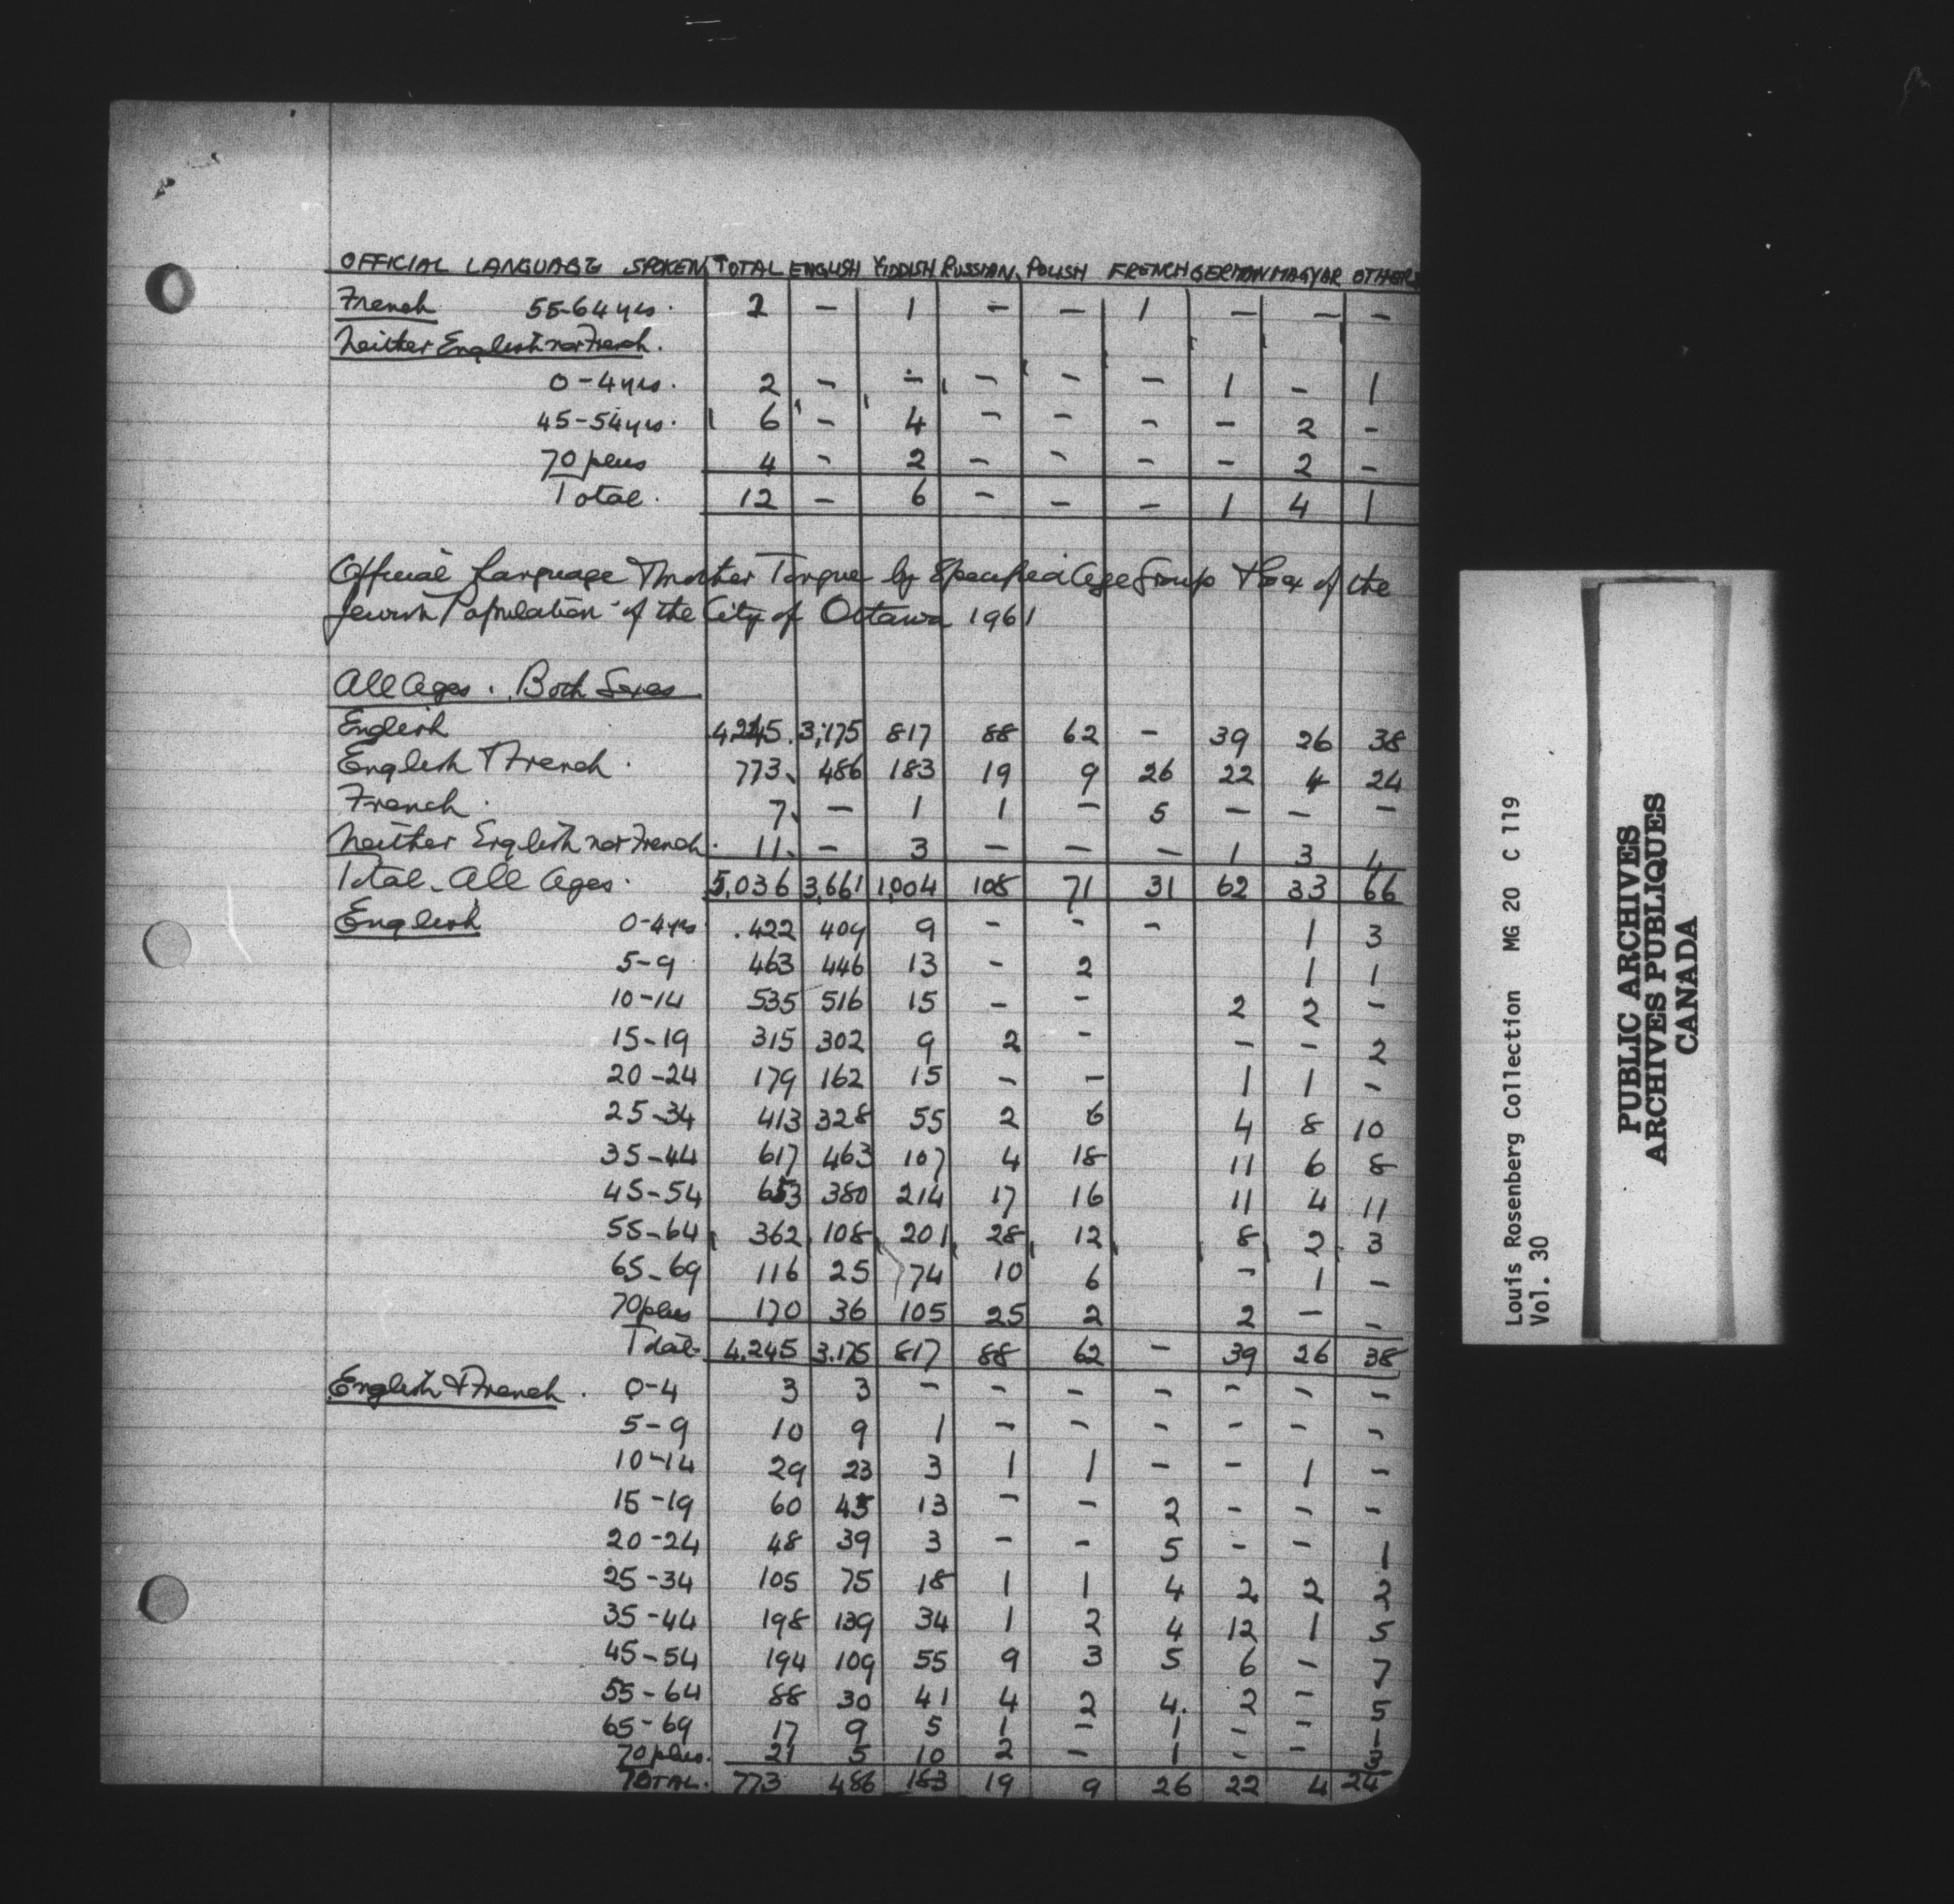 OFFICIAL LANGUAGE SPOKEN TOTAL ENGLISH YIDDISH RUSSIAN POLISH FRENCH GERMAN MAGYAR OTHERS
French 55-64 yrs. 2 – 1 – – 1 – – –
Neither English nor French.
0-4 yrs. 2 – – – – – 1 – 1
45-54 yrs. 6 – 4 – – – – 2 –
70 plus 4 – 2 – – – – 2 –
Total. 12 – 6 – – – 1 4 1
Official Language & Mother Tongue by Specified Age Group & Sex of the
Jewish Population of the City of Ottawa 1961
All Ages. Both Sexes
English 4,245 3,175 817 88 62 – 39 26 38
English & French. 773 486 183 19 9 26 22 4 24
French. 7 – 1 1 – 5 – – –
Neither English nor French. 11 – 3 – – – 1 3 4
Total – All Ages. 5,036 3,661 1,004 108 71 31 62 33 66
English 0-4 yrs 422 409 9 – – – 1 3
5-9 463 446 13 – 2 1 1
10-14 535 516 15 – – 2 2 –
15-19 315 302 9 2 – – – 2
20-24 179 162 15 – – 1 1 –
25-34 413 328 55 2 6 4 8 10
35-44 617 463 107 4 18 11 6 8
45-54 653 380 214 17 16 11 4 11
55-64 362 108 201 28 12 8 2 3
65-69 116 25 74 10 6 – 1 –
70 plus 170 36 105 25 2 2 – –
Total 4,245 3,175 817 88 62 – 39 26 38
English & French. 0-4 3 3 – – – – – – –
5-9 10 9 1 – – – – – –
10-14 29 23 3 1 1 – – 1 –
15-19 60 45 13 – – 2 – – –
20-24 48 39 3 – – 5 – – 1
25-34 105 75 18 1 1 4 2 2 2
35-44 198 139 34 1 2 4 12 1 5
45-54 194 109 55 9 3 5 6 – 7
55-64 88 30 41 4 2 4. 2 – 5
65-69 17 9 5 1 – 1 – – 1
70 plus. 21 5 10 2 – 1 – – 3
TOTAL. 773 486 183 19 9 26 22 4 24
Louis Rosenberg Collection MG 20 C 119
Vol. 30
PUBLIC ARCHIVES
ARCHIVES PUBLIQUES
CANADA